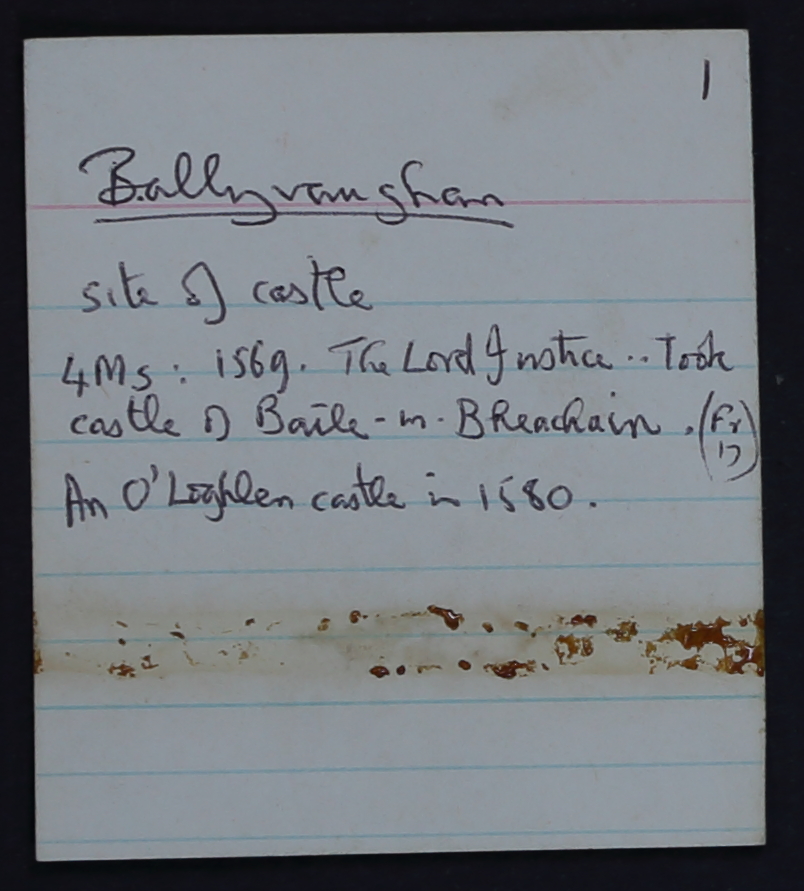 1
Ballyvaughan
site of castle
4Ms: 1569. The Lord Justice .. Took
castle of Baile-m-Bheachain. (Fr 17)
An O'Loghlen castle in 1580.